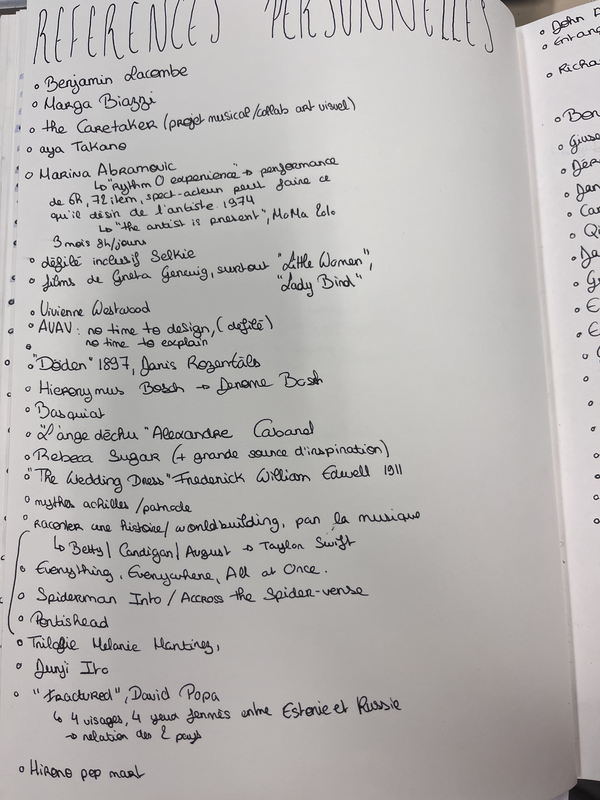 REFERENCES PERSONNELLES
• Benjamin Lacombe
• Marga Biazzi
• the Caretaker (projet musical/collab art visuel)
• aya Takano
• Marina Abramovic
↳ "rythm O experience" → performance
de 6h, 72 item, spect-acteur peut faire ce
qu'il désir de l'artiste. 1974
↳ "the artist is present", MoMa 2010
3 mois 8h/jours
• défilé inclusif Selkie
• films de Greta Gerwig, surtout "Little Women",
"Lady Bird"
• Vivienne Westwood
• AVAV : no time to design, (défilé)
• no time to explain
• "Döden" 1897, Janis Rozentāls
• Hieronymus Bosch → Jerome Bosch
• Basquiat
• "L'ange déchu" Alexandre Cabanel
• Rebeca Sugar (+ grande source d'inspiration)
• "The Wedding Dress" Frederick William Elwell 1911
• mythes achilles /patrocle
• raconter une histoire/ worldbuilding, par la musique
↳ Betty/ Cardigan/ August → Taylor Swift
• Everything, Everywhere, All at Once.
• Spiderman Into / Accross the Spider-verse
• Portishead
• Trilogie Melanie Martinez,
• Junji Ito
• "Fractured", David Popa
↳ 4 visages, 4 yeux fermés entre Estonie et Russie
→ relation des 2 pays
• Hirono pop mart
• John
• Richa